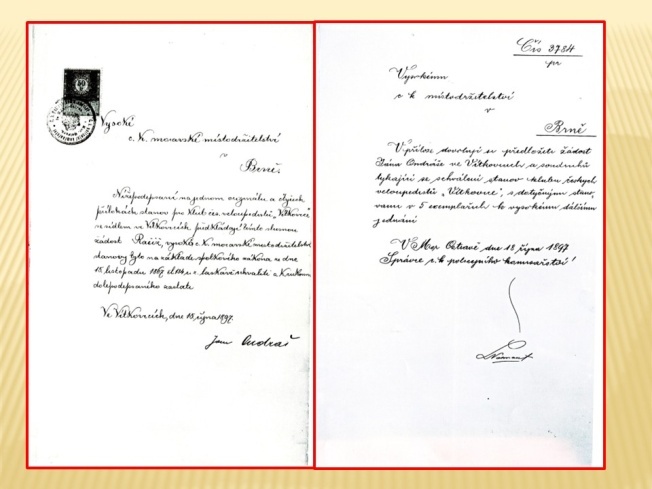 Vysoké
c. k. moravské místodržitelství
v
Brně.
Nížepodepsaní na jednom originálu a
přílohách stanov pro klub čes. velocipedistů „Vítkovice"
se sídlem ve Vítkovicích předkládají tímto slušnou
žádost Račiž, vysoké c. k. moravské místodržitelství,
stanovy tyto na základě spolkového zákona ze dne
15. listopadu 1867 č. 134 ř. z. laskavě schváliti a k rukoum
dolepodepsaného zaslati.
Ve Vítkovicích, dne 18. října 1897.
Jan Ondráš
Čís 3784
pr
Vysokému
c. k. místodržitelství
v
Brně
V příloze dovoluji si předložiti žádost
Jána Ondráše ve Vítkovicích a soudruhů
týkající se schválení stanov klubu českých
velocipedistů „Vítkovice", s dotyčnými stano-
vami v 5 exemplářích k vysokému dalšímu
jednání
V Mor Ostravě dne 18. října 1897
Správce c. k. policejního komisařství!